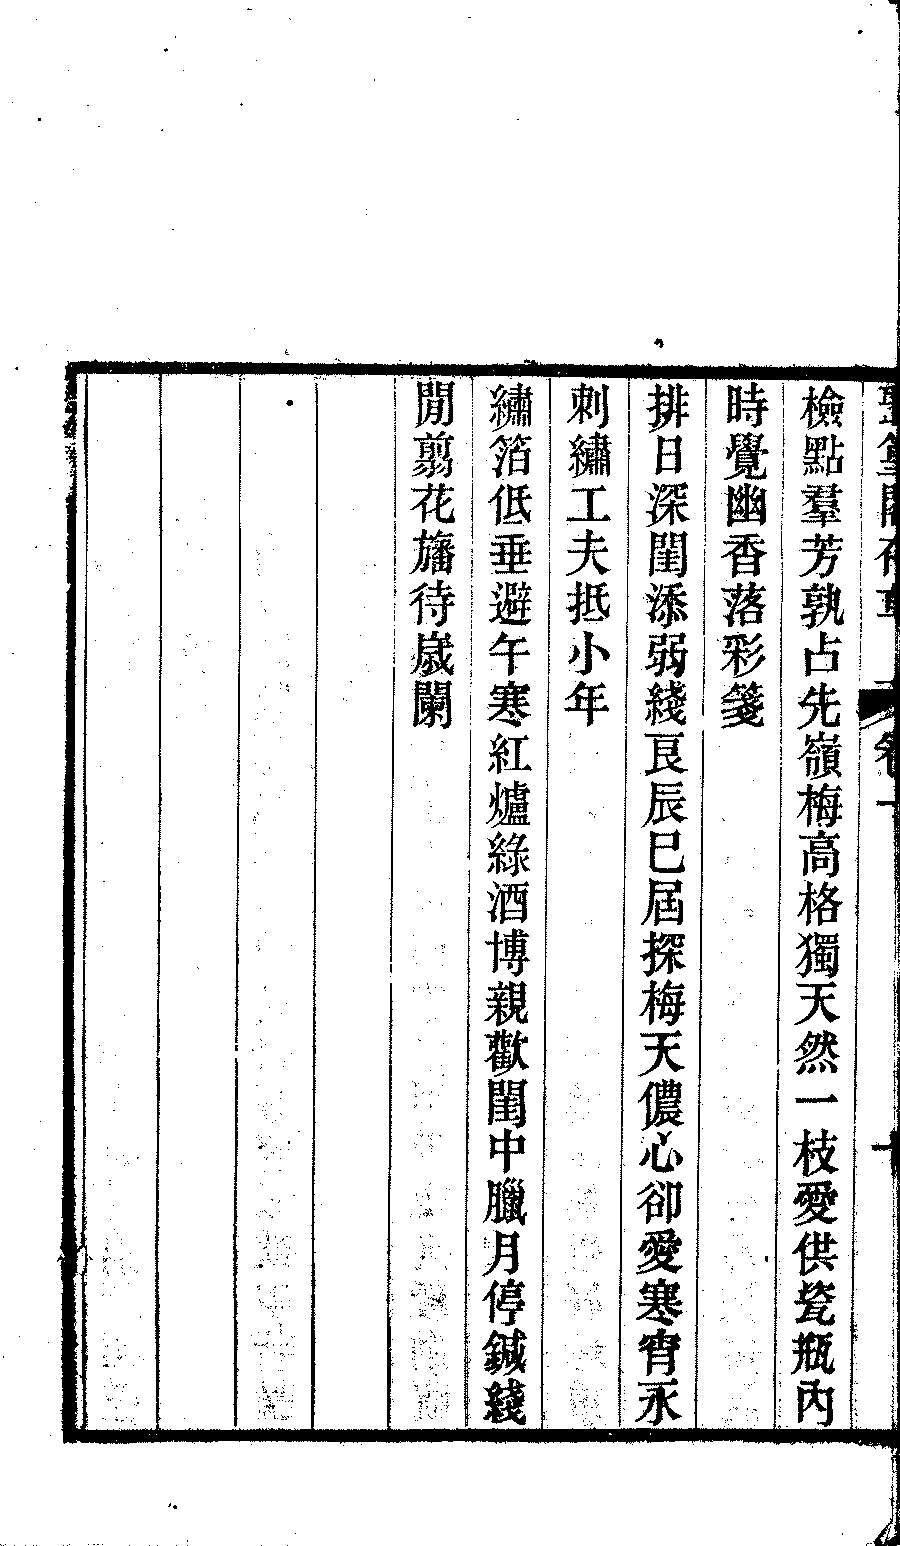 檢點羣芳孰占先嶺梅高格獨天然一枝愛供瓷瓶內
時覺幽香落彩箋
排日深閨添弱綫艮辰巳屆探梅天儂心卻愛寒宵永
刺繡工夫抵小年
繡箔低垂避午寒紅爐綠酒博親歡閨中臘月停鍼綫
閒翦花旛待歲闌